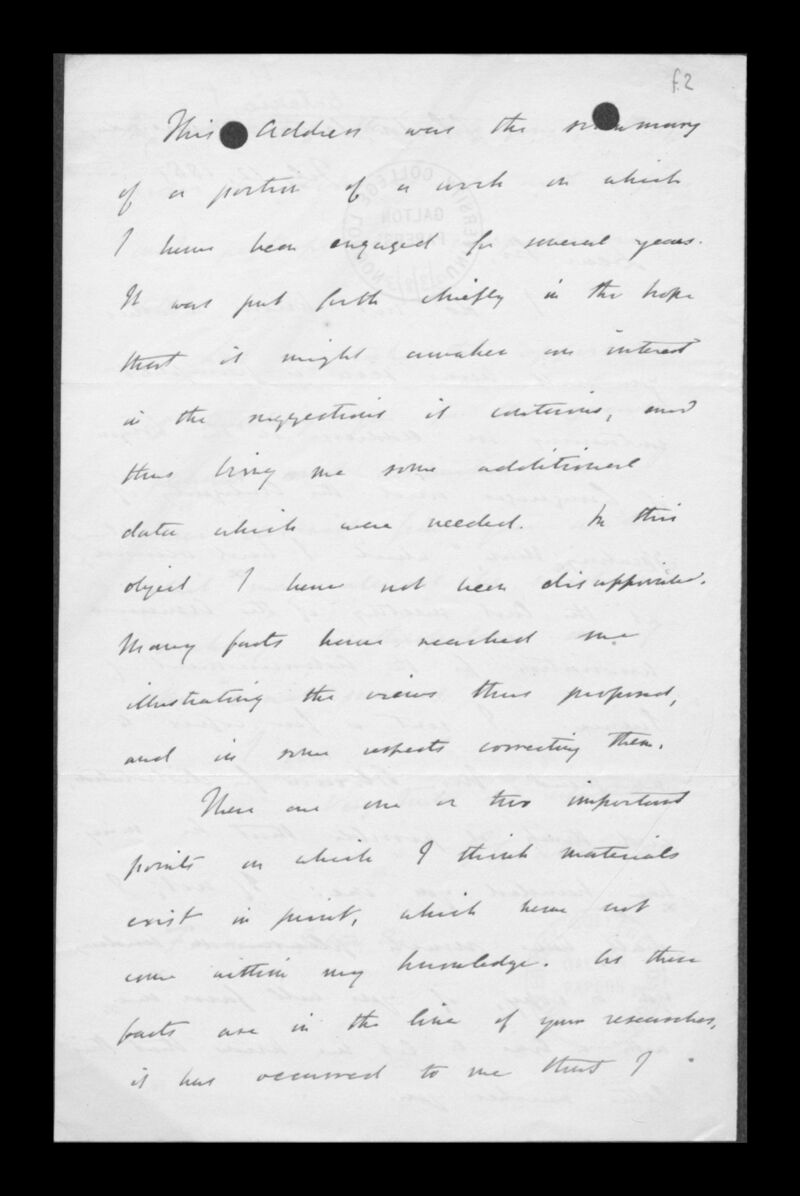 f.2
This Address was the summary
of a portion of a work on which
I have been engaged for several years.
It was put forth chiefly in the hope
that it might awaken an interest
in the suggestions it contains, and
thus bring me some additional
data which were needed. In this
object I have not been disappointed.
Many facts have reached me
illustrating the views thus proposed,
and in some respects correcting them.
There are one or two important
points on which I think materials
exist in print, which have not
come within my knowledge. As these
facts are in the line of your researches,
it has occurred to me that I